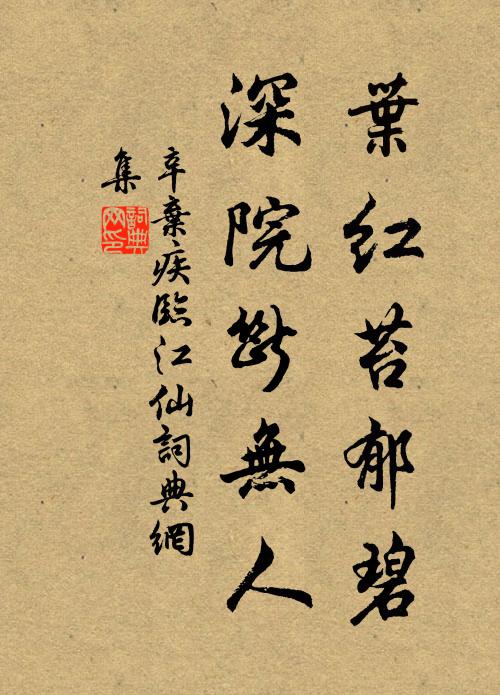 葉紅苔郁碧
深院斷無人
辛棄疾臨江仙詞典網
集
詞典
网印